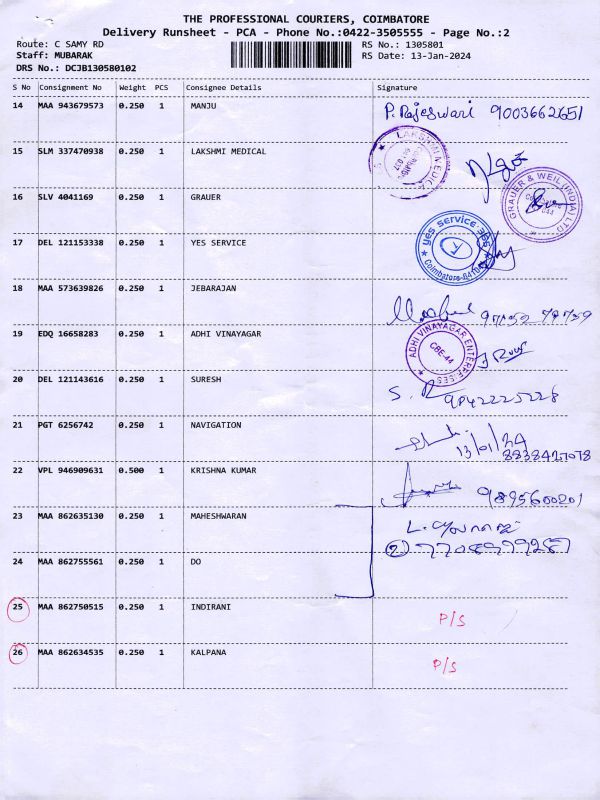 THE PROFESSIONAL COURIERS, COIMBATORE
Delivery Runsheet - PCA - Phone No.:0422-3505555 - Page No.:2
Route: C SAMY RD RS No.: 1305801
Staff: MUBARAK RS Date: 13-Jan-2024
DRS No.: DCJB130580102
S No Consignment No Weight PCS Consignee Details Signature
14 MAA 943679573 0.250 1 MANJU P. Rajeswari 9003662651
15 SLM 337470938 0.250 1 LAKSHMI MEDICAL LAKSHMI MEDICAL
16 SLV 4041169 0.250 1 GRAUER GRAUER & WEIL (INDIA) LTD
17 DEL 121153338 0.250 1 YES SERVICE yes service 366 Coimbatore-641044
18 MAA 573639826 0.250 1 JEBARAJAN
19 EDQ 16658283 0.250 1 ADHI VINAYAGAR ADHI VINAYAGAR ENTERPRISES CBE-44
20 DEL 121143616 0.250 1 SURESH 9842225228
21 PGT 6256742 0.250 1 NAVIGATION 13/01/24
8838427078
22 VPL 946909631 0.500 1 KRISHNA KUMAR 9895600201
23 MAA 862635130 0.250 1 MAHESHWARAN
24 MAA 862755561 0.250 1 DO
25 MAA 862750515 0.250 1 INDIRANI P/S
26 MAA 862634535 0.250 1 KALPANA P/S